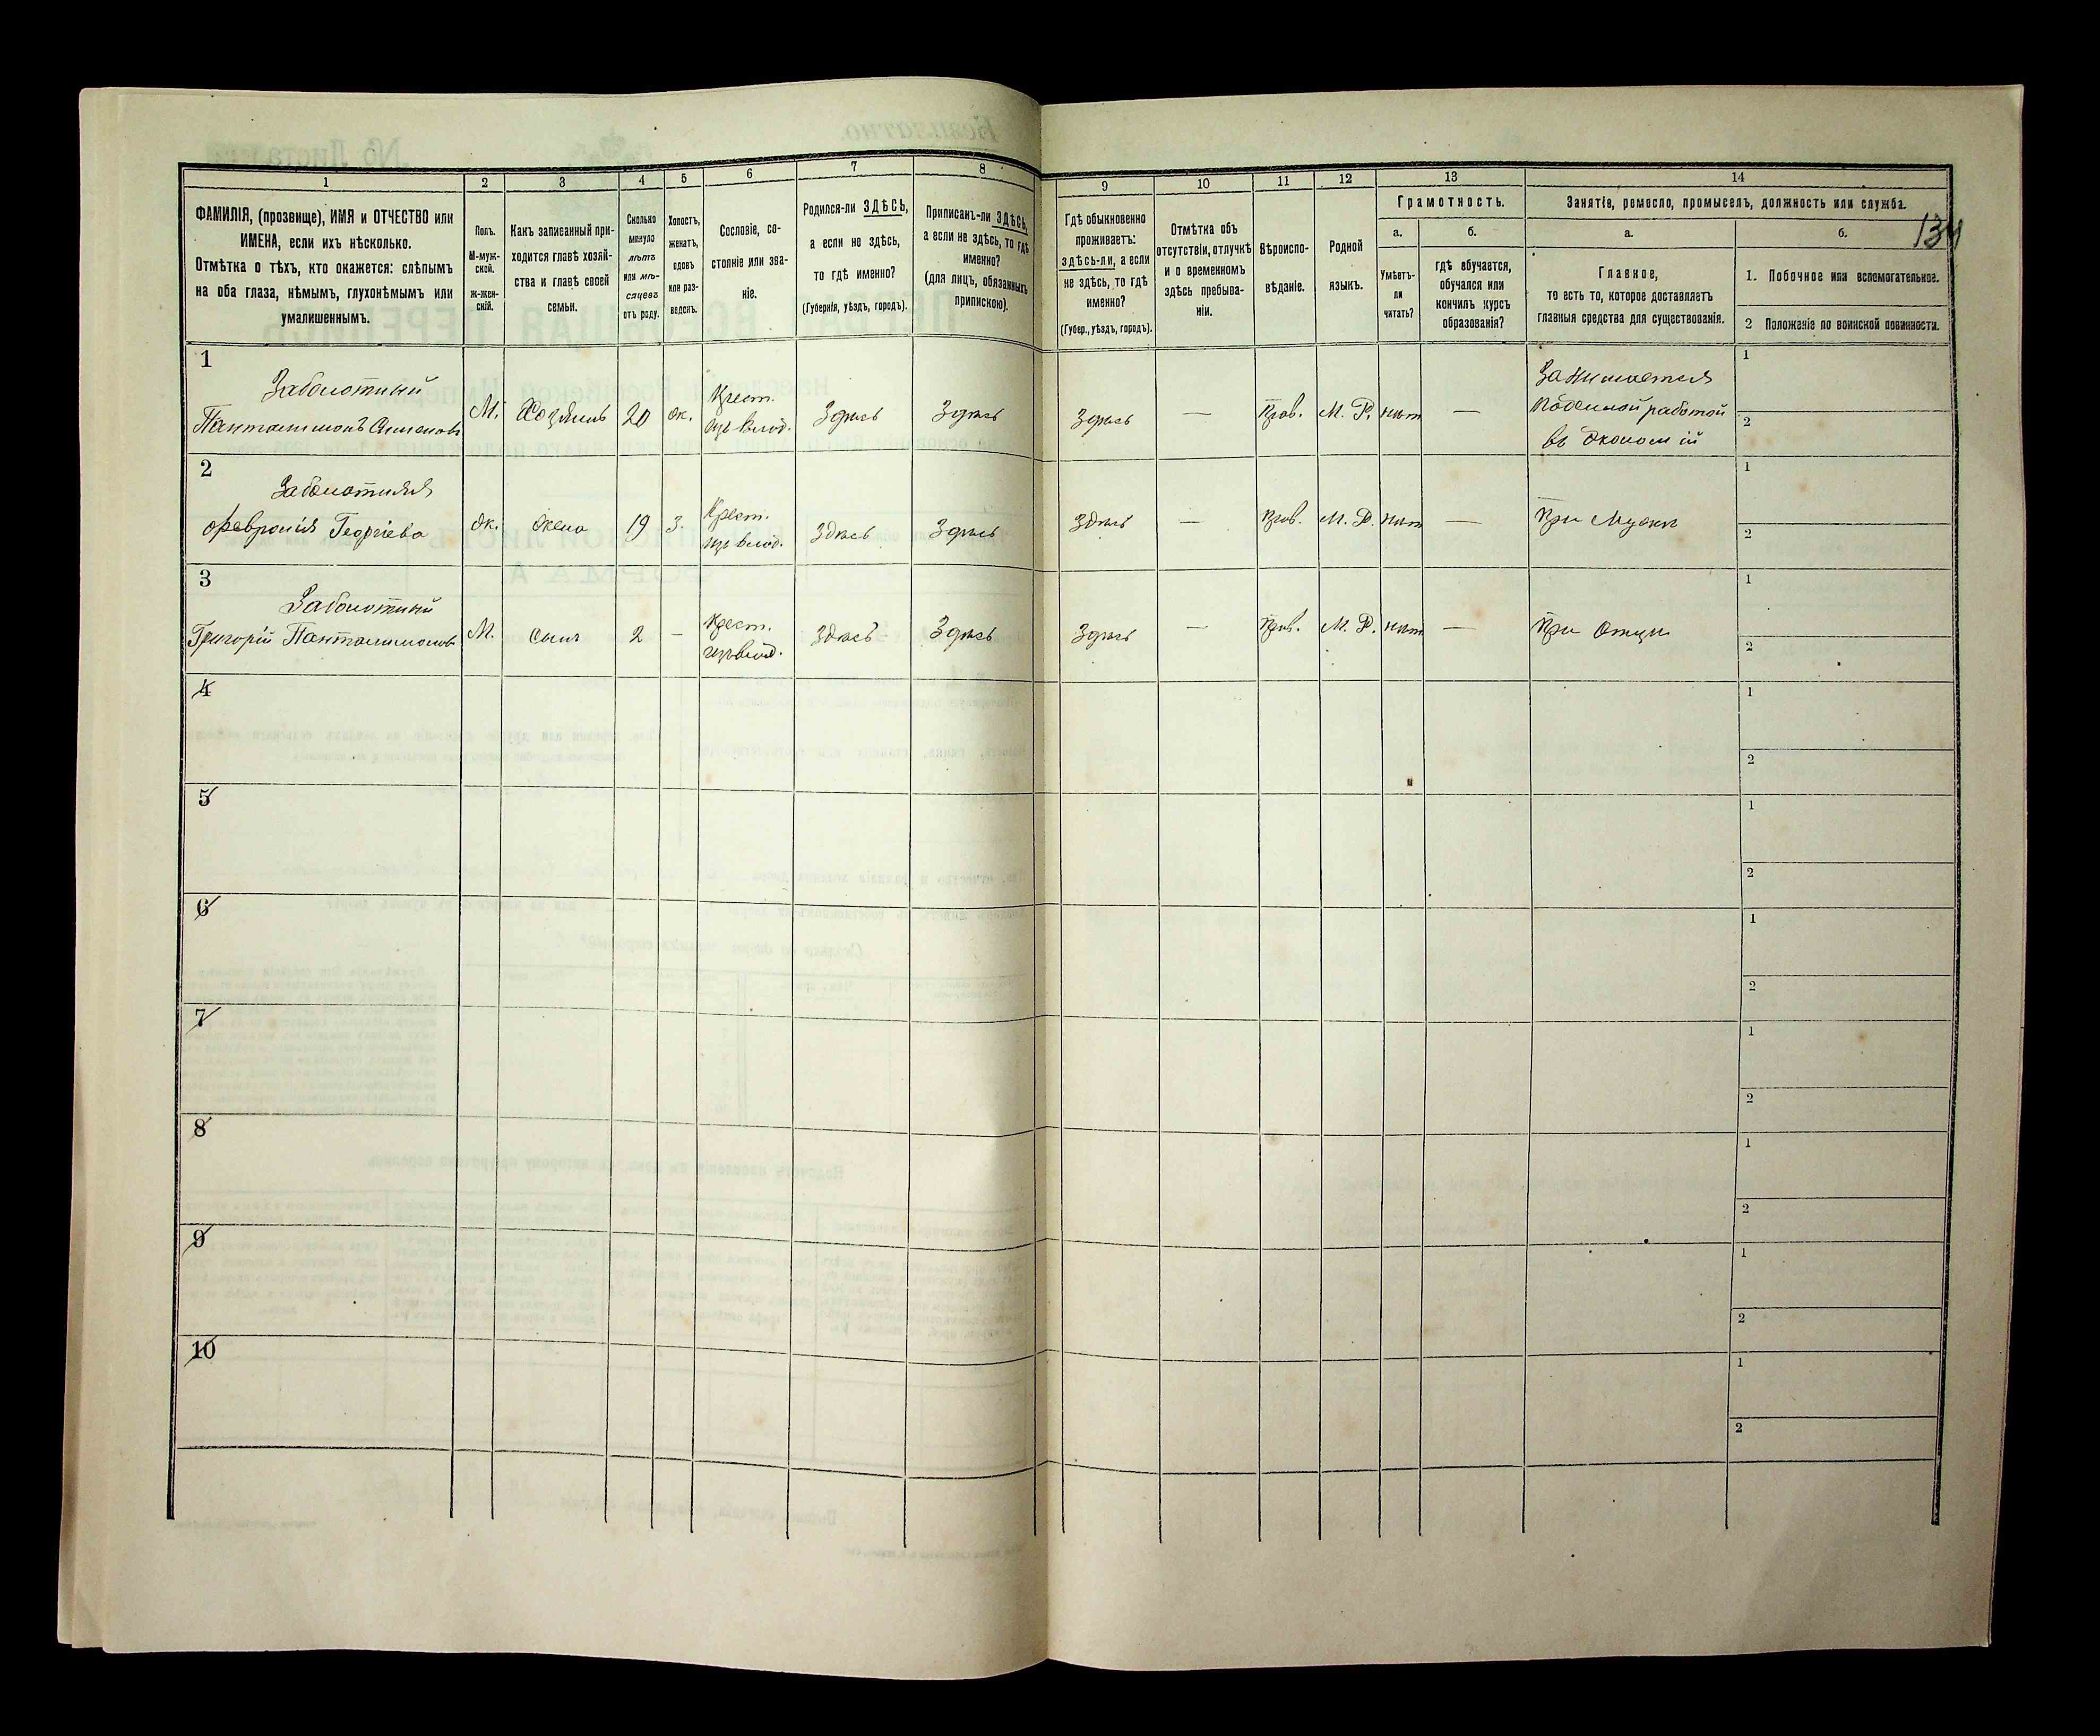 134
1
2
3
4
5
6
7
8
9
10
11
12
13
14
ФАМИЛІЯ, (прозвище), ИМЯ и ОТЧЕСТВО или
ИМЕНА, если ихъ нѣсколько.
Отмѣтка о тѣхъ, кто окажется: слѣпымъ
на оба глаза, нѣмымъ, глухонѣмымъ или
умалишеннымъ.
Полъ.
М-муж-
ской.
ж-жен-
скій.
Какъ записанный при-
ходится главѣ хозяй-
ства и главѣ своей
семьи.
Сколько
минуло
лѣтъ
или мѣ-
сяцевъ
отъ роду.
Холостъ,
женатъ,
вдовъ
или раз-
веденъ.
Сословіе, со-
стояніе или зва-
ніе.
Родился-ли ЗДѢСЬ,
а если не здѣсь,
то гдѣ именно?
(Губернія, уѣздъ, городъ).
Приписанъ-ли ЗДѢСЬ,
а если не здѣсь, то гдѣ
именно?
(для лицъ, обязанныхъ
припискою).
Гдѣ обыкновенно
проживаетъ:
здѣсь-ли, а если
не здѣсь, то гдѣ
именно?
(Губер., уѣздъ, городъ).
Отмѣтка объ
отсутствіи, отлучкѣ
и о временномъ
здѣсь пребыва-
ніи.
Вѣроиспо-
вѣданіе.
Родной
языкъ.
Грамотность.
а.
Умѣетъ-
ли
читать?
б.
гдѣ обучается,
обучался или
кончилъ курсъ
образованія?
Занятіе, ремесло, промыселъ, должность или служба.
а.
Главное,
то есть то, которое доставляетъ
главныя средства для существованія.
б.
1. Побочное или вспомогательное.
2 Положеніе по воинской повинности.
1
Заболотный
Пантелимонъ Симеоновъ
М.
Хозяинъ
20
ж.
Крест.
изъ влад.
Здѣсь
Здѣсь
Здѣсь
—
Прав.
М. Р.
нѣт
—
Занимается
поденной работой
въ Экономій
1
2
2
Заболотняя
Февронія Георгіева
Ж.
Жена
19
З.
Крест.
изъ влад.
Здѣсь
Здѣсь
Здѣсь
—
Прав.
М. Р.
нѣт
—
При Мужѣ
1
2
3
Заболотный
Григорій Пантелимоновъ
М.
Сынъ
2
—
Крест.
изъ влад.
Здѣсь
Здѣсь
Здѣсь
—
Прав.
М. Р.
нѣт
—
При Отцѣ
1
2
4
1
2
5
1
2
6
1
2
7
1
2
8
1
2
9
1
2
10
1
2